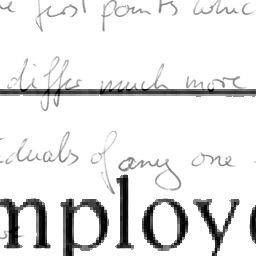 first points which
differ much more
of any one
mploye